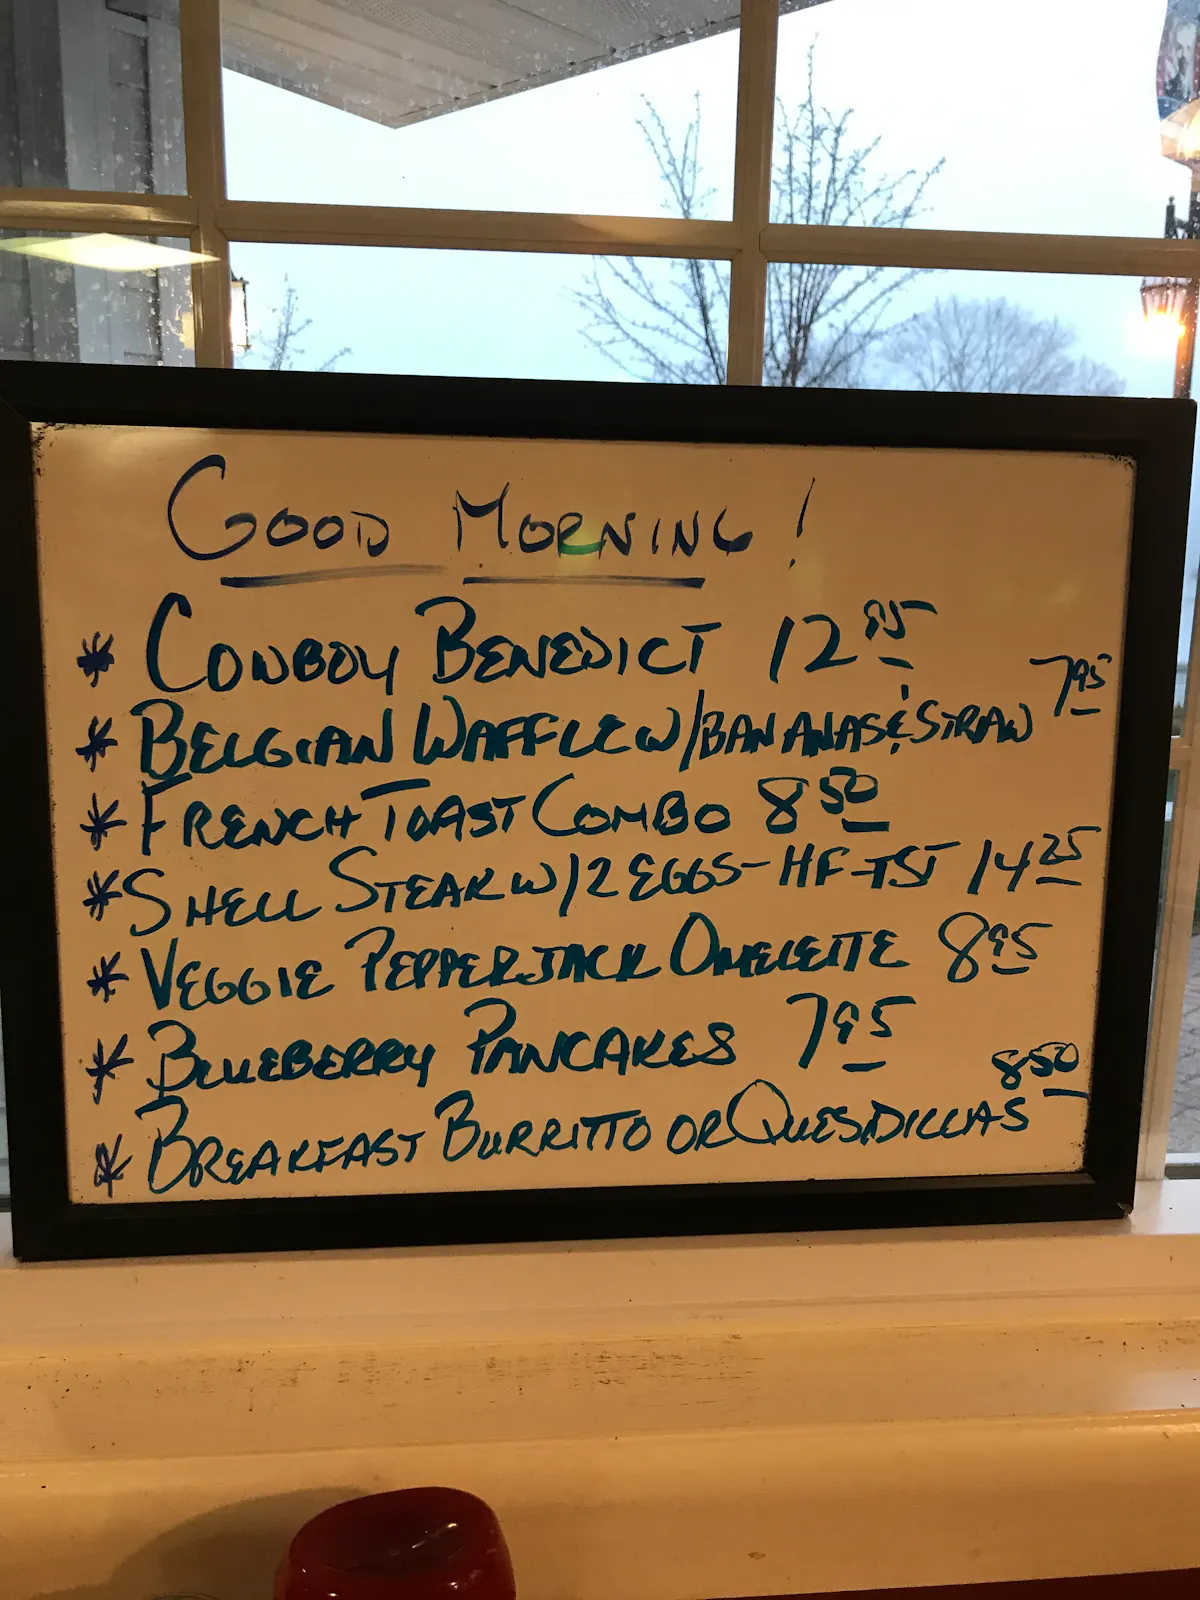 GOOD MORNING!
* COWBOY BENEDICT 12 95
* BELGIAN WAFFLE W/BANANAS & STRAW 7 95
* FRENCH TOAST COMBO 8 50
* SHELL STEAK W/2 EGGS-HF-TST 14 25
* VEGGIE PEPPERJACK OMELETTE 8 95
* BLUEBERRY PANCAKES 7 95
* BREAKFAST BURRITO OR QUESADILLAS 8 50